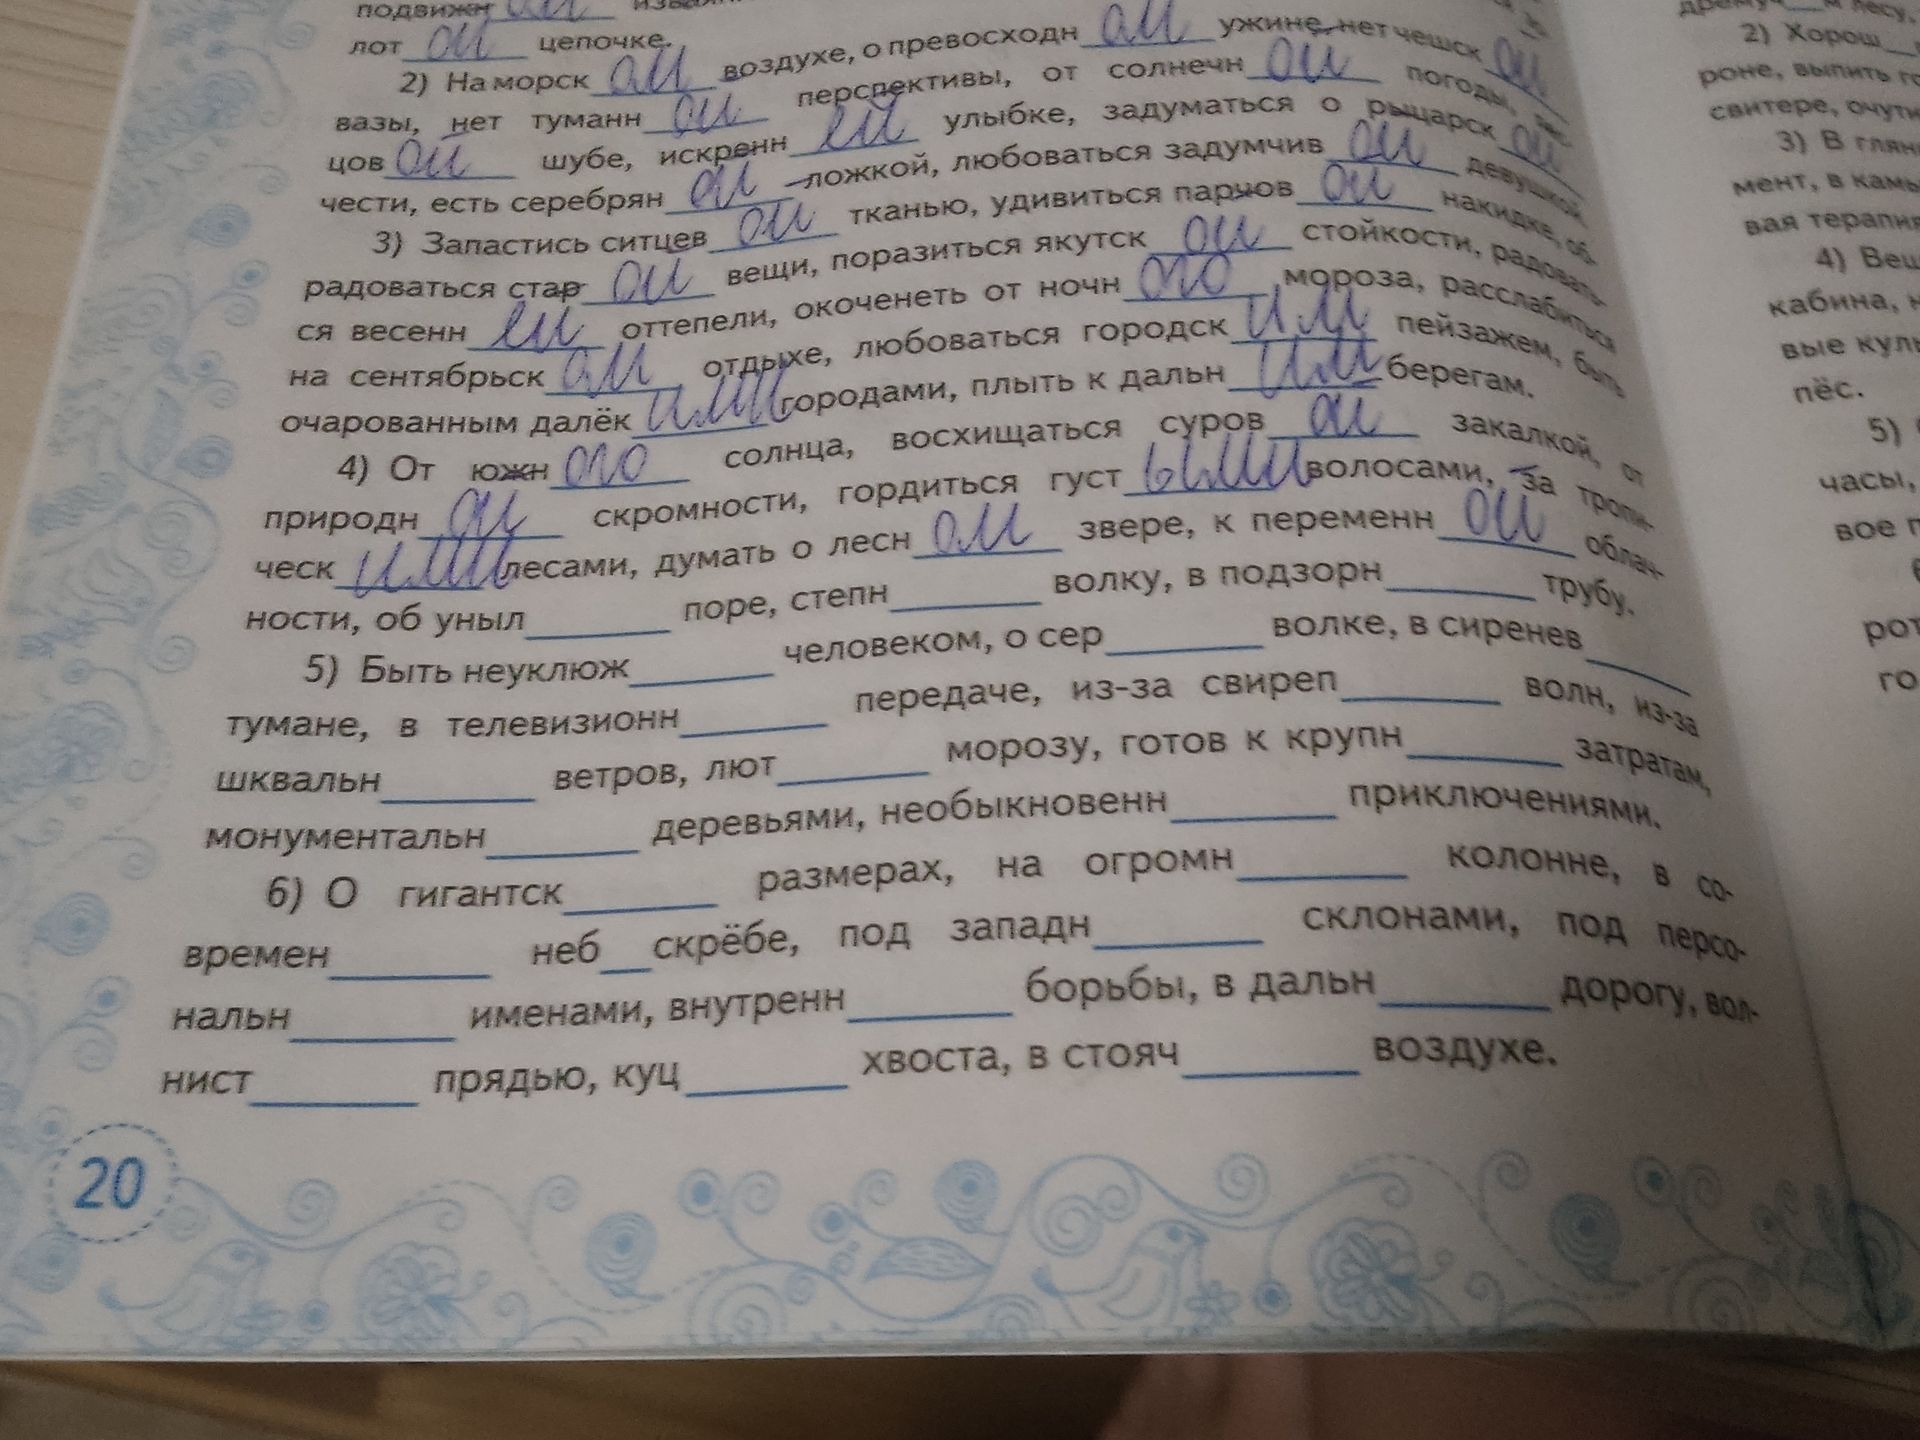 подвижн ой
лот ой цепочке.
2) На морск ом воздухе, о превосходн ом ужине, нет чешск ой
вазы, нет туманн ой перспективы, от солнечн ой погоды,
цов ой шубе, искренн ей улыбке, задуматься о рыцарск ой
чести, есть серебрян ой ложкой, любоваться задумчив ой девушкой
3) Запастись ситцев ой тканью, удивиться парчов ой накидке, об-
радоваться стар ой вещи, поразиться якутск ой стойкости, радовать-
ся весенн ей оттепели, окоченеть от ночн ого мороза, расслабиться
на сентябрьск ом отдыхе, любоваться городск им пейзажем, быть
очарованным далёк ими городами, плыть к дальн им берегам.
4) От южн ого солнца, восхищаться суров ой закалкой, от
природн ой скромности, гордиться густ ыми волосами, за тропи-
ческ ими лесами, думать о лесн ом звере, к переменн ой облач-
ности, об уныл____ поре, степн____ волку, в подзорн____ трубу.
5) Быть неуклюж____ человеком, о сер____ волке, в сиренев____
тумане, в телевизионн____ передаче, из-за свиреп____ волн, из-за
шквальн____ ветров, лют____ морозу, готов к крупн____ затратам,
монументальн____ деревьями, необыкновенн____ приключениями.
6) О гигантск____ размерах, на огромн____ колонне, в со-
времен____ неб_скрёбе, под западн____ склонами, под персо-
нальн____ именами, внутренн____ борьбы, в дальн____ дорогу, вол-
нист____ прядью, куц____ хвоста, в стояч____ воздухе.
20
м лесу,
2) Хорош
роне, выпить
свитере,
3) В
мент, в
вая терапия
4)
кабина,
вые
пёс.
5)
часы,
вое